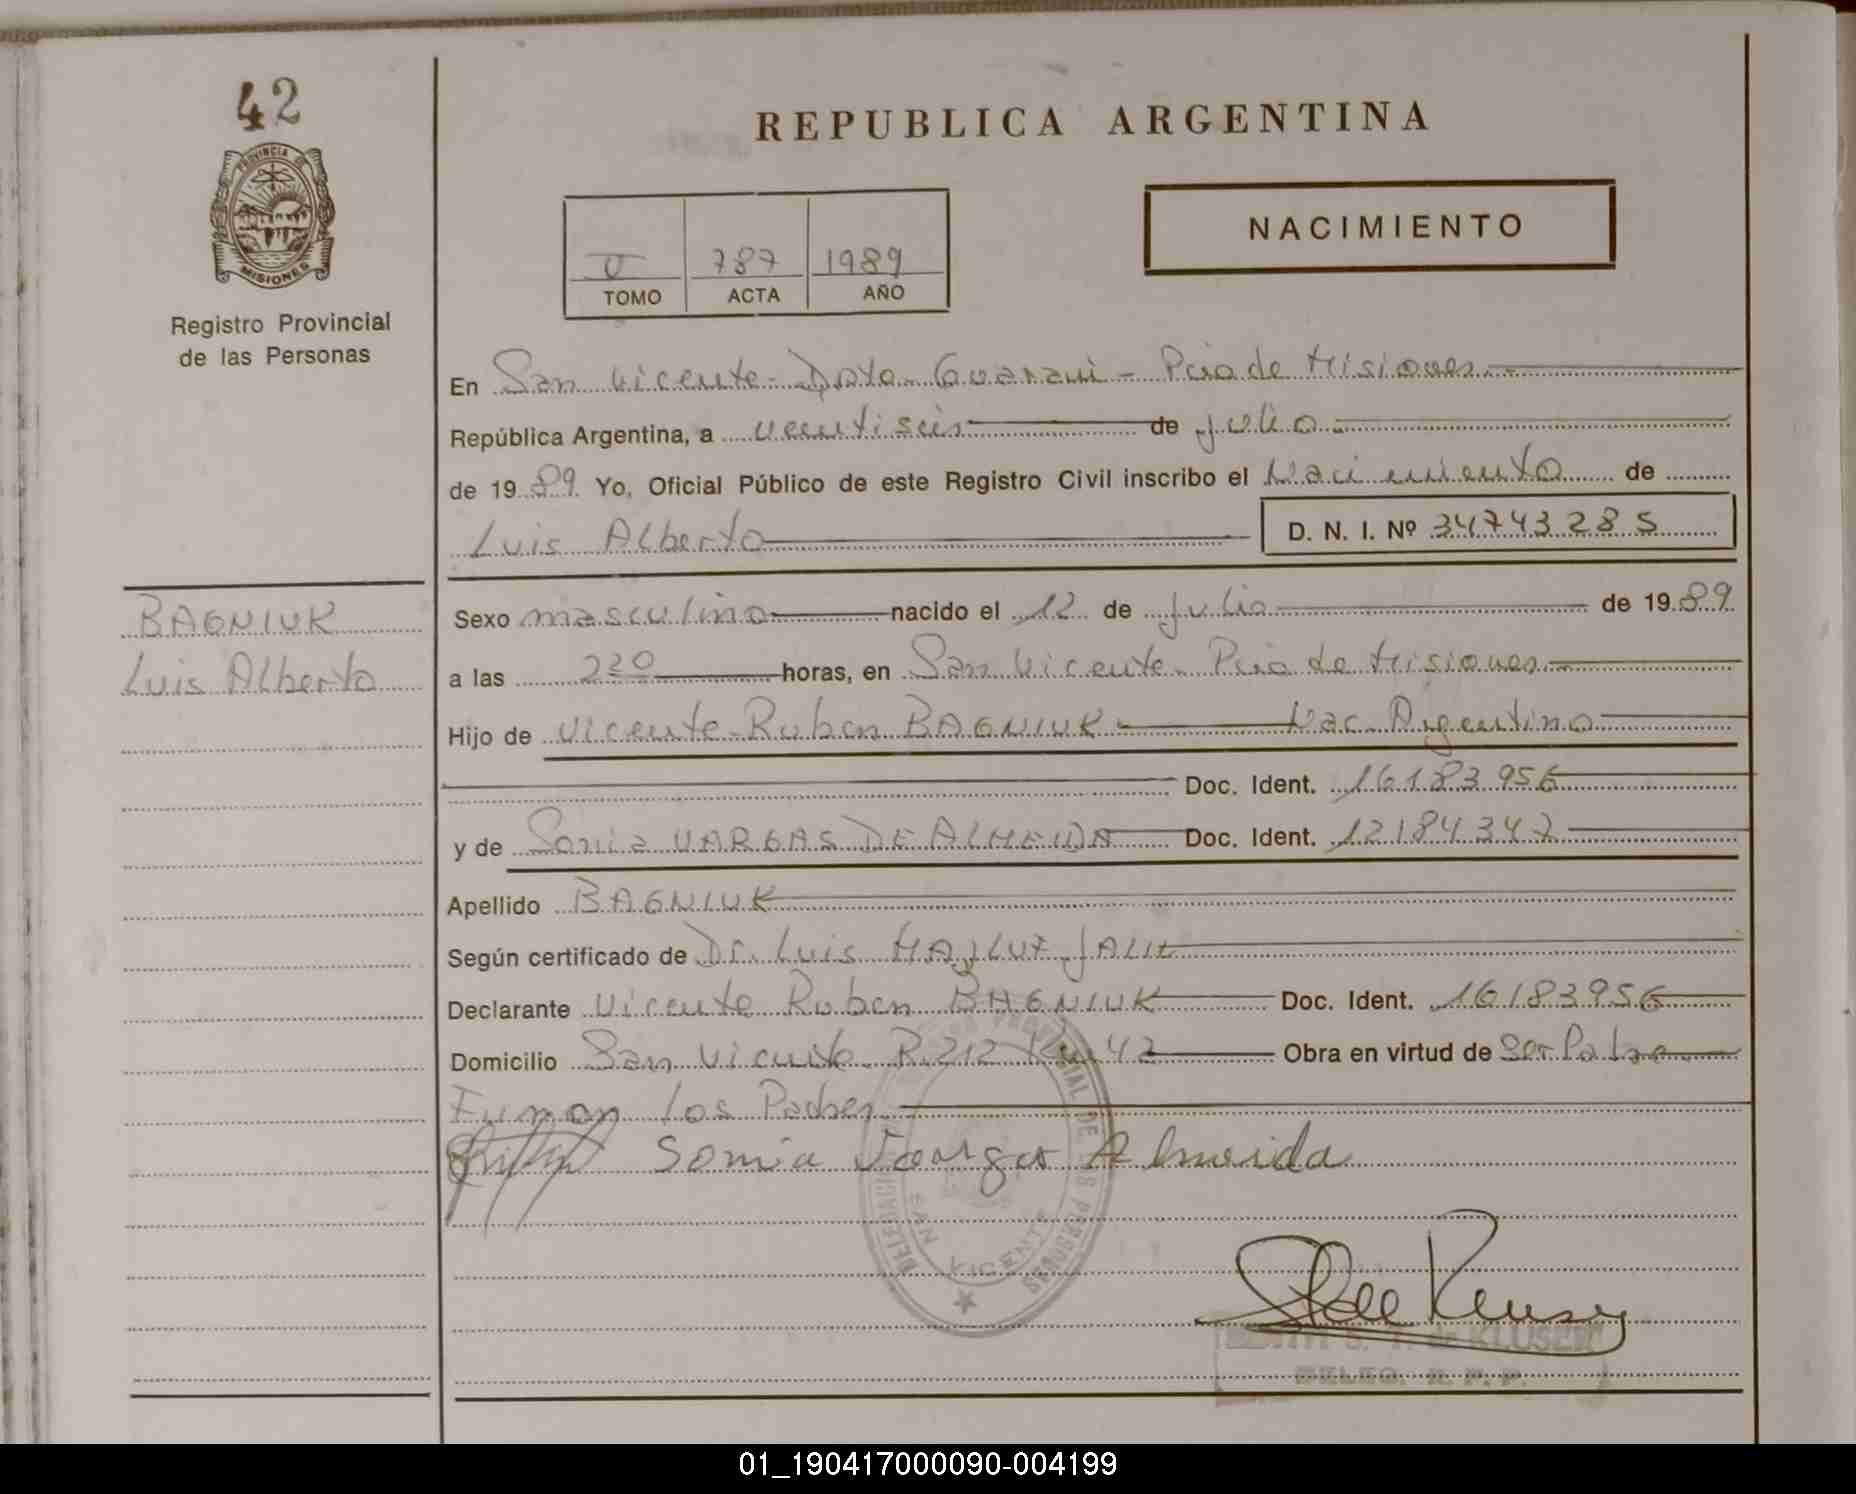 42
PROVINCIA DE
MISIONES
Registro Provincial
de las Personas
BAGNIUK
Luis Alberto
REPUBLICA ARGENTINA
V 787 1989
TOMO ACTA AÑO
NACIMIENTO
En San Vicente - Dpto. Guarani - Pcia de Misiones.
República Argentina, a veintiseis de julio
de 1989 Yo, Oficial Público de este Registro Civil inscribo el Nacimiento de
Luis Alberto D. N. I. Nº 34743285
Sexo masculino nacido el 12 de julio de 1989
a las 2 20 horas, en San Vicente - Pcia de Misiones
Hijo de Vicente Ruben BAGNIUK - Nac. Argentino
Doc. Ident. 16183956
y de Sonia VARGAS DE ALMEIDA Doc. Ident. 12184347
Apellido BAGNIUK
Según certificado de Dr. Luis
Declarante Vicente Ruben BAGNIUK Doc. Ident. 16183956
Domicilio San Vicente R. 212 Km 42 Obra en virtud de Ser Padre
Firman los Padres
Sonia Vargas Almeida
SAN VICENTE
de KLUSER
DELEG. R. P. P.
01_190417000090-004199